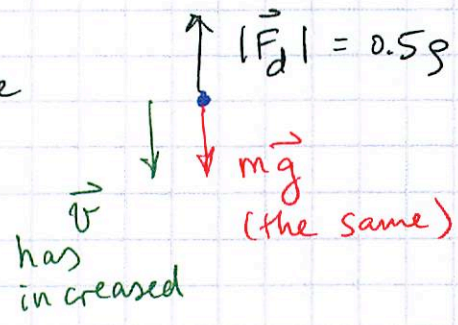 e
|F⃗_d| = 0.5ρ
mg⃗
(the same)
v⃗
has
increased